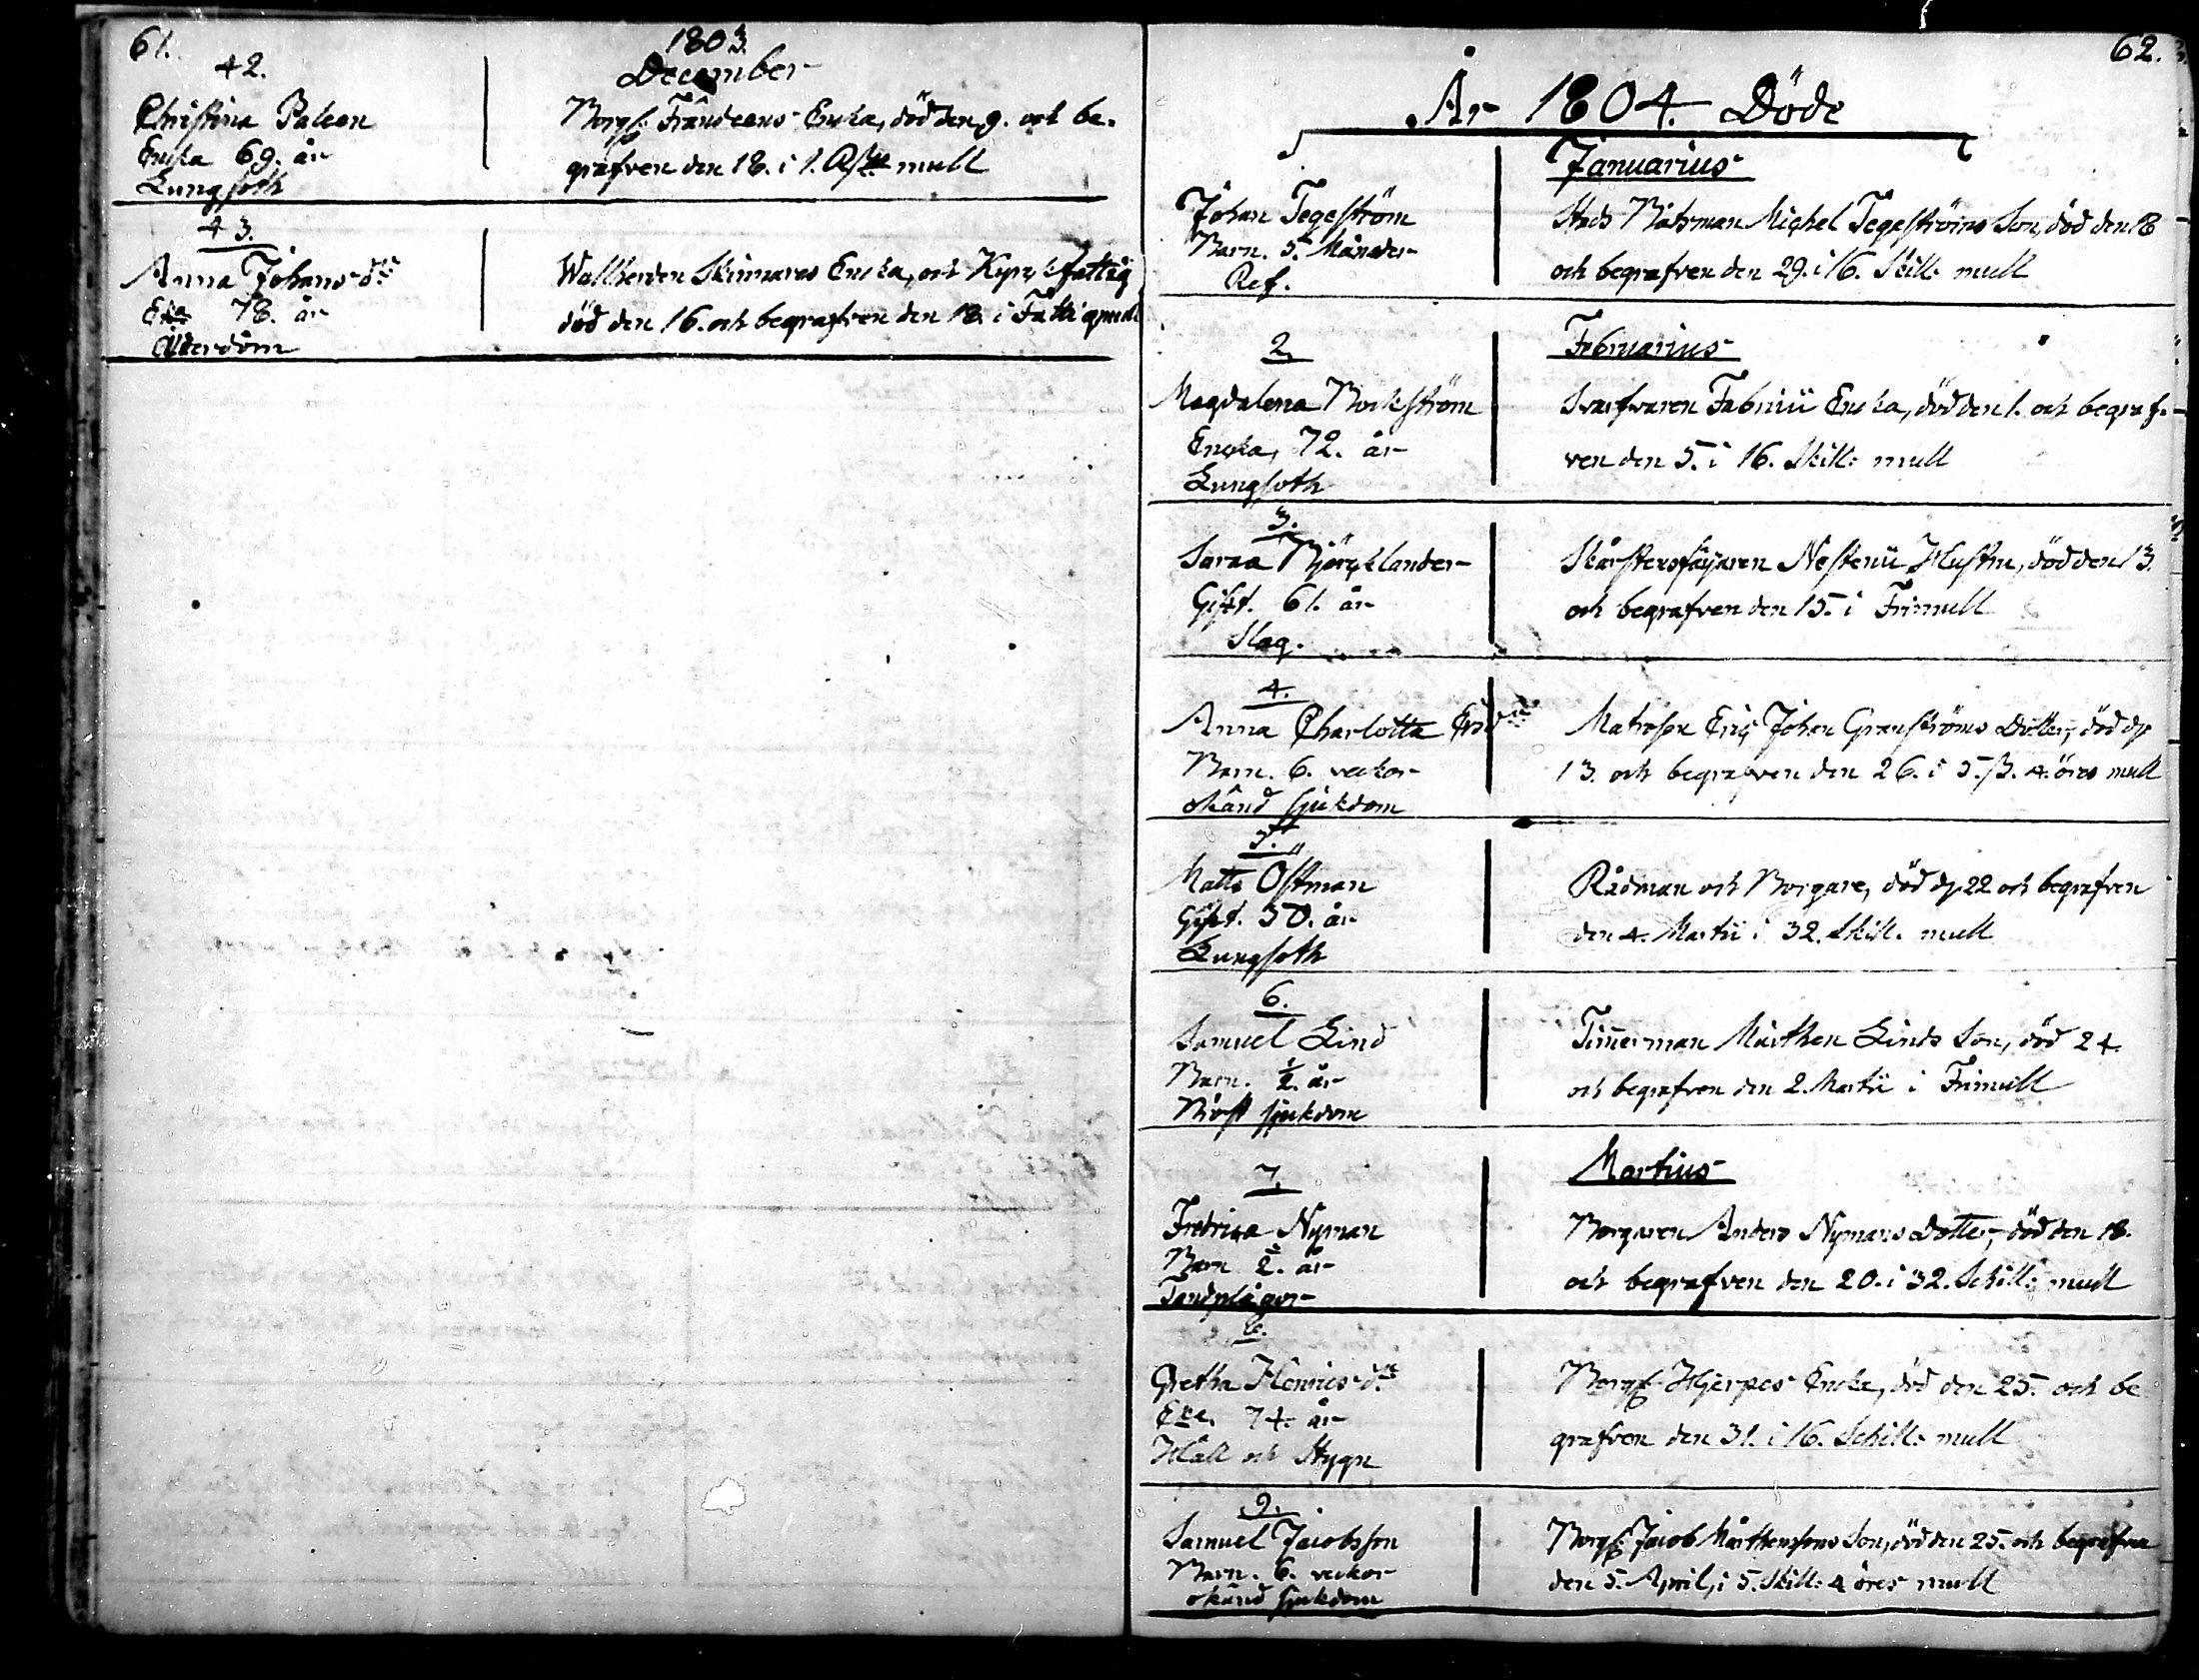 61.
1803.
December
42.
Christina Paleen
Encka 69. år
Lungsoth
Borgs. Frändeens Encka, död den 9. och be-
grafven den 18. i 1. mull
43.
Anna Johans dr
Eka 78. år
Ålderdom
Wallherden Skinnares Encka, och Kyrck fattig
död den 16. och begrafven den 18. i Fattigmull
62.
År 1804. Döde
Januarius
Johan Tegeström
Barn. 5. Månader
Ref.
Stads Båtsman Michel Tegeströms Son, död den 18
och begrafven den 29. i 16. Skill: mull
Februarius
2.
Magdalena Bockström
Encka, 72. år
Lungsoth
Svarfvaren Fabricii Encka, död den 1. och begraf-
ven den 5. i 16. Skill: mull
3.
Saraa Björcklander
Gift. 61. år
Slag.
Skårstensfäijaren Nestenii Hustru, död den 13.
och begrafven den 15. i Frimull
4.
Anna Charlotta
Barn. 6. veckor
okänd sjukdom
Matrosen Eric Johan Granströms Dotter, död d.
13. och begrafven den 26. i 5. ß. 4. öres mull
5.
Matts Östman
Gift. 50. år
Lungsoth
Rådman och Borgare, död d. 22 och begrafven
den 4. Martii i 32. Skill. mull
6.
Samuel Lind
Barn. ½. år
Bröst sjukdom
Timmerman Mårthen Linds Son, död 24.
och begrafven den 2. Martii i Frimull
Martius
7.
Fredrica Nyman
Barn ½. år
Tandplågor
Borgaren Anders Nymans Dotter, död den 18.
och begrafven den 20. i 32. Schill: mull
8.
Gretha Henrics dr
Eka. 74. år
Håll och Stygn
Borgs. Hjerpes Encka, död den 25. och be
grafven den 31. i 16. Schill: mull
9.
Samuel Jacobsson
Barn. 6. veckor
okänd sjukdom
Borgs. Jacob Mårthenssons Son, död den 25. och begrafven
den 5. April, i 5. Skill: 4 öres mull